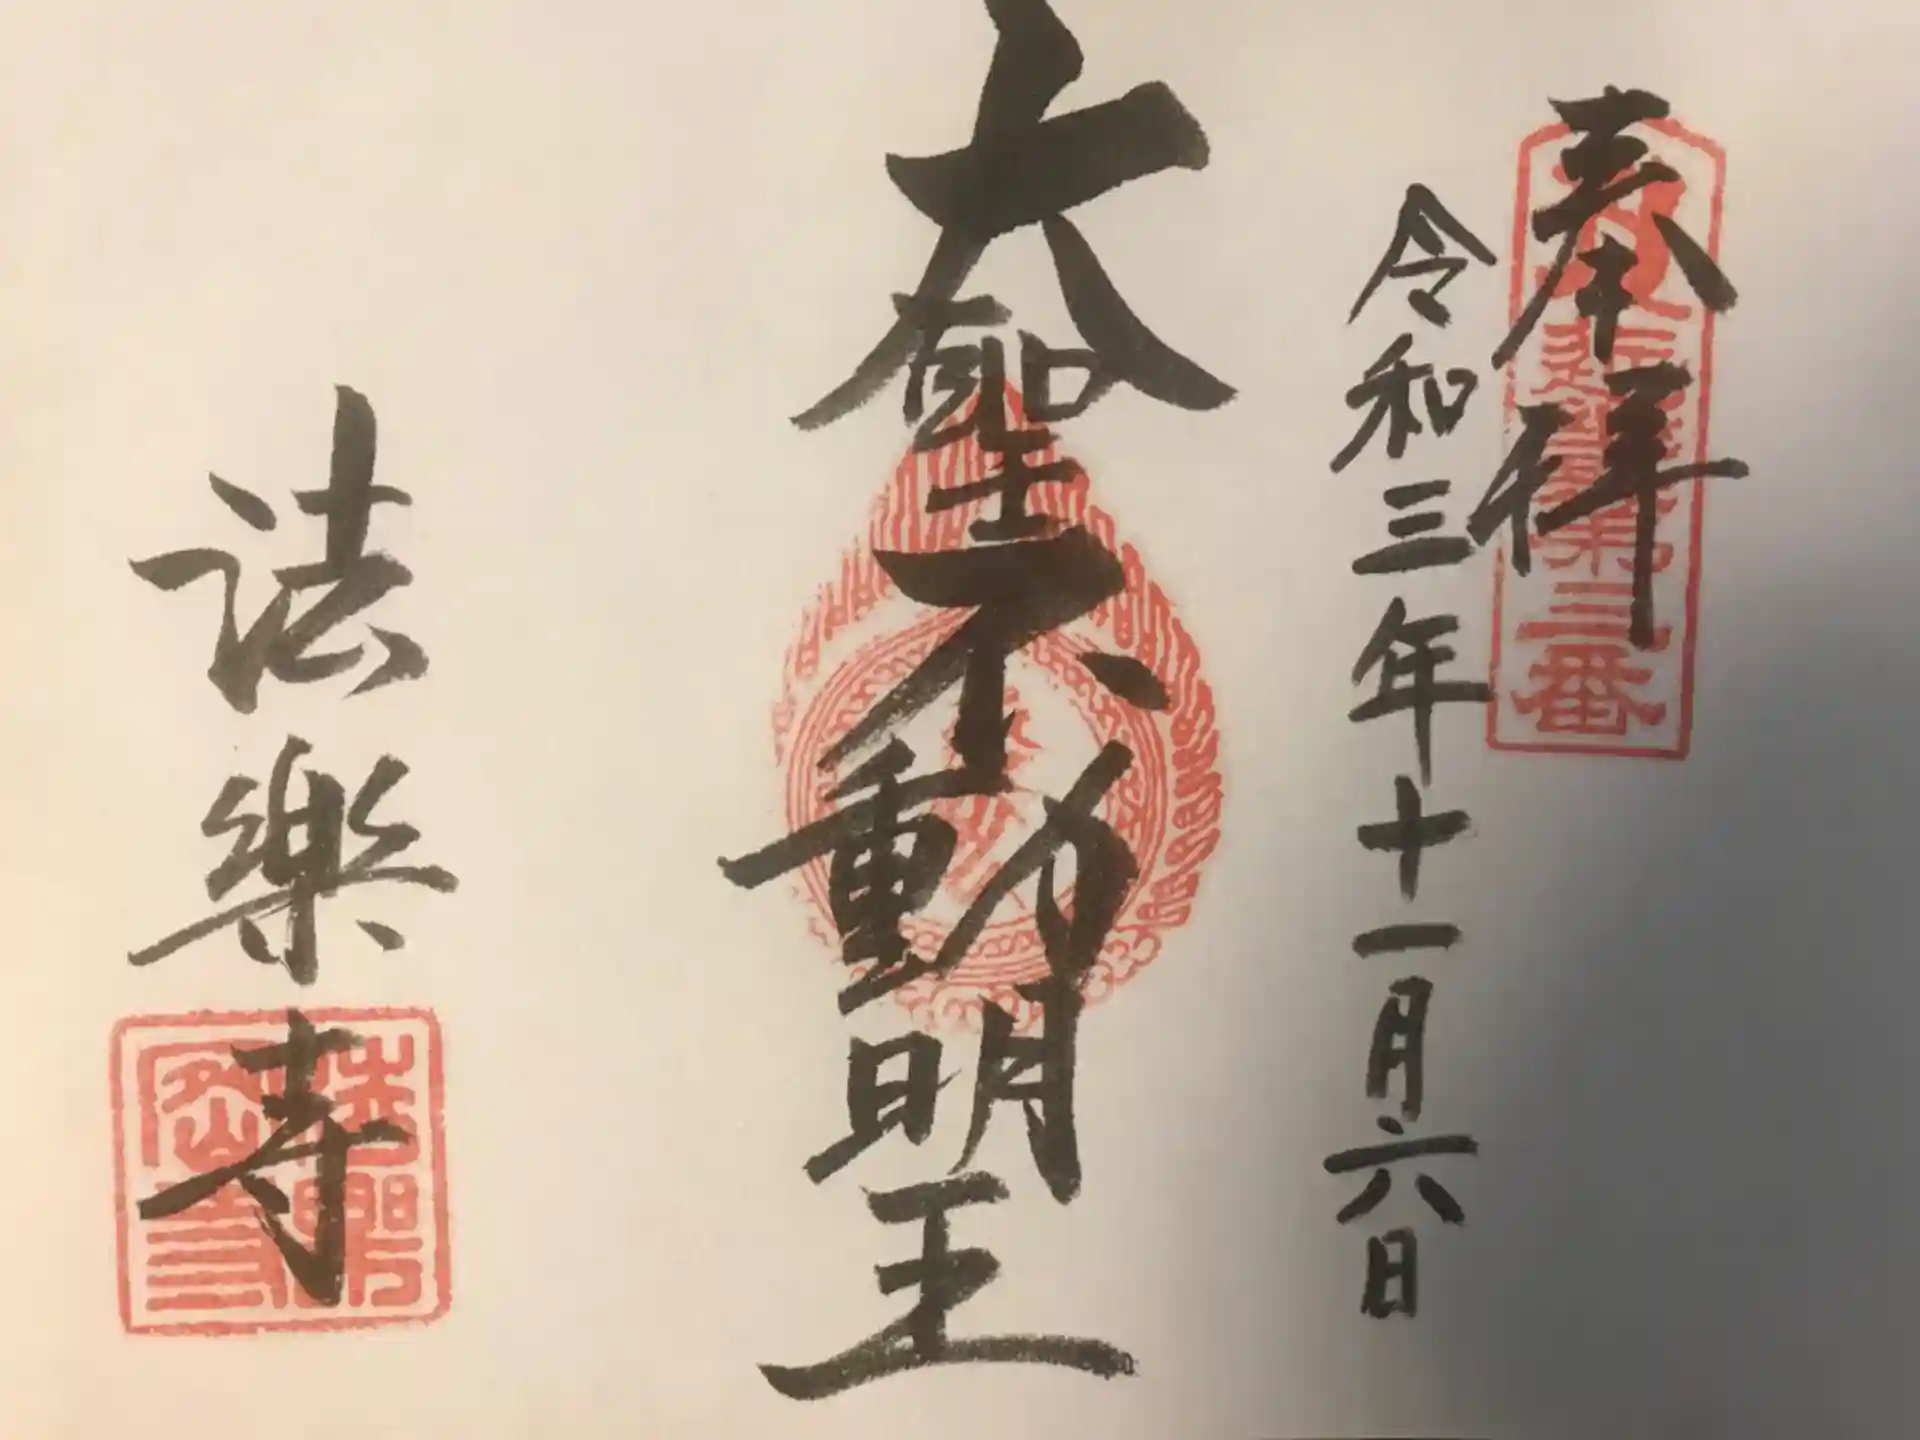 奉拝
令和三年十一月六日
大聖不動明王
法樂寺
三番